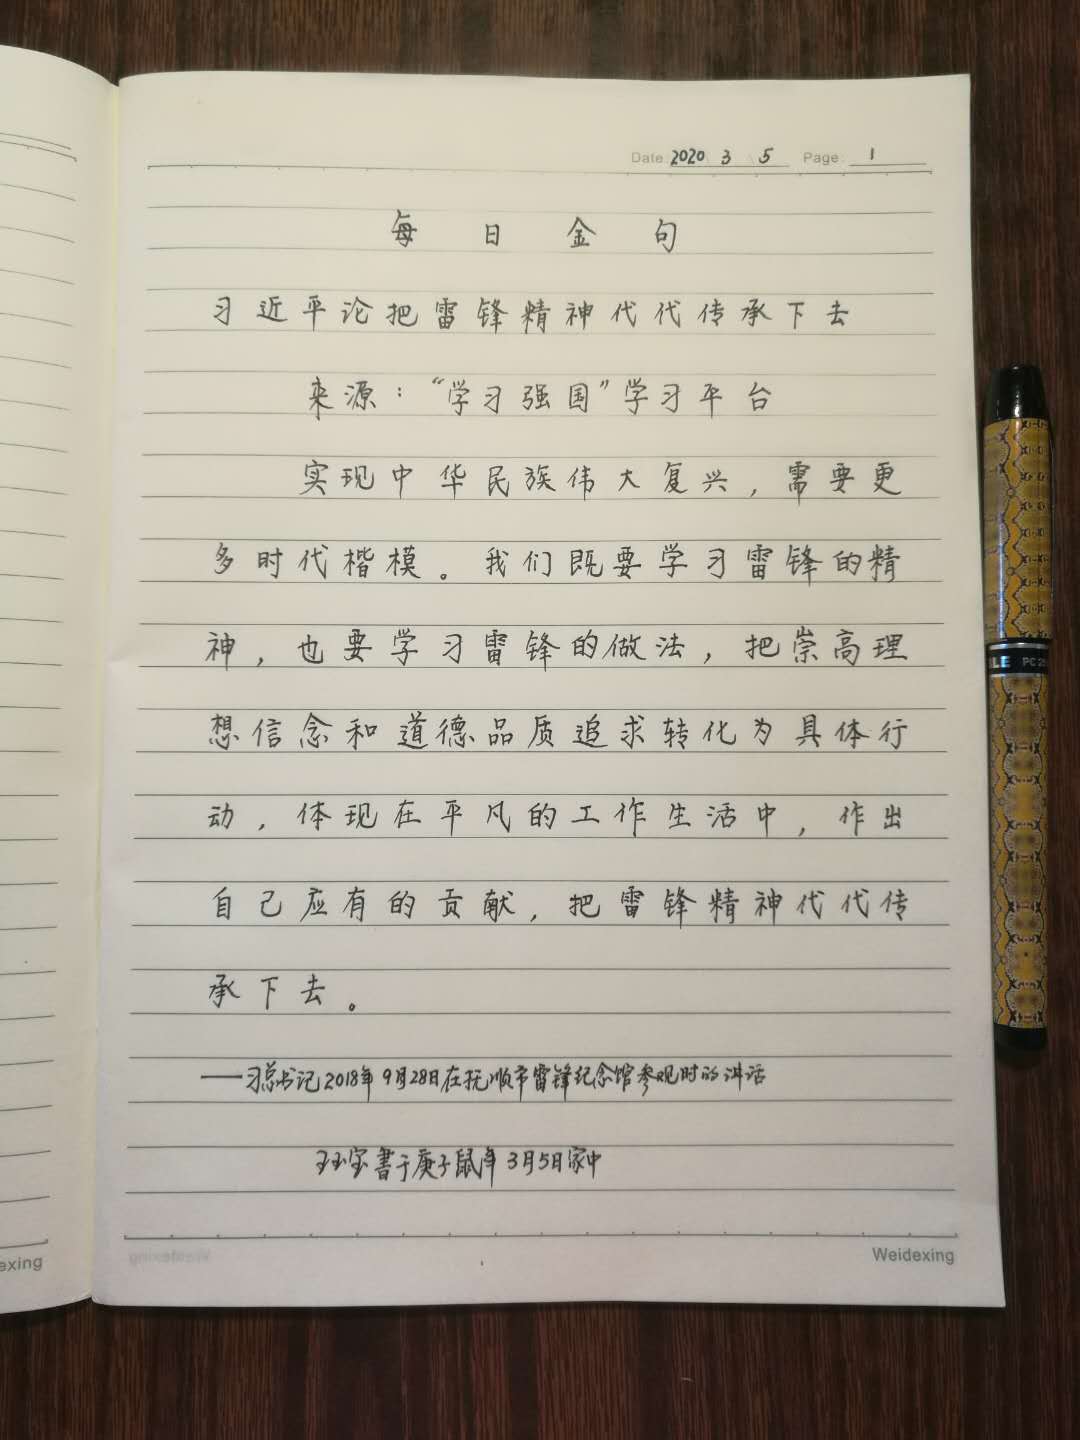 Date 2020 \ 3 \ 5 Page: 1
每日金句
习近平论把雷锋精神代代传承下去
来源：“学习强国”学习平台
实现中华民族伟大复兴，需要更
多时代楷模。我们既要学习雷锋的精
神，也要学习雷锋的做法，把崇高理
想信念和道德品质追求转化为具体行
动，体现在平凡的工作生活中，作出
自己应有的贡献，把雷锋精神代代传
承下去。
——习总书记2018年9月28日在抚顺市雷锋纪念馆参观时的讲话
王玉宝書于庚子鼠年3月5日家中
Weidexing
exing
PC 25